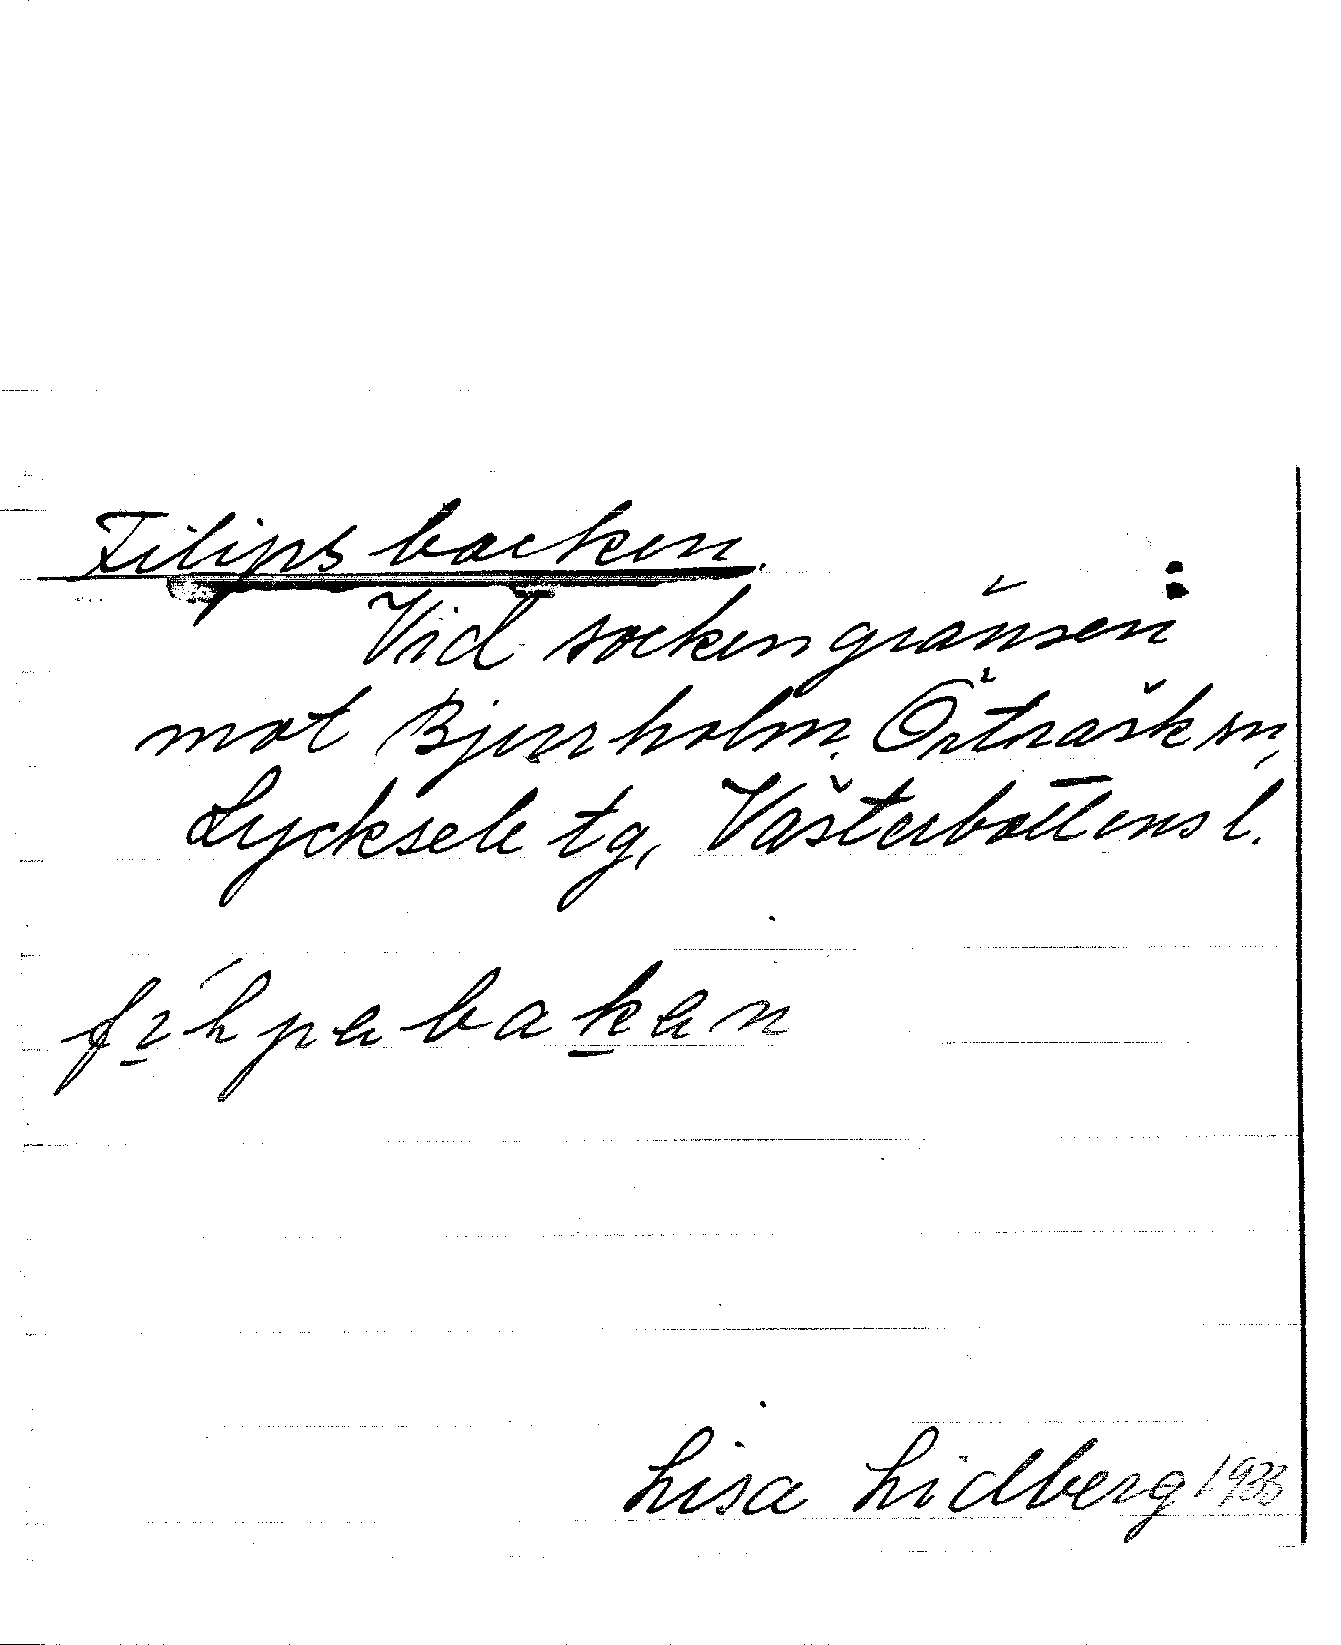 Filipsbacken.
Vid sockengränsen
mot Bjurholm. Örträsk sn,
Lycksele tg, Västerbottens l.
Lisa Lidberg 1933